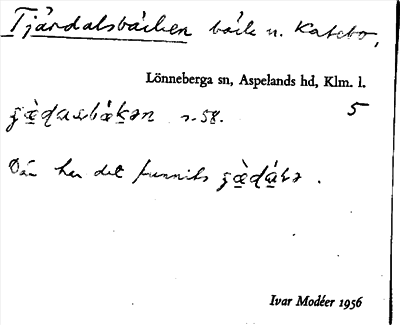 Tjärdalsbäcken bäck n. Katebo,
Lönneberga sn, Aspelands hd, Klm. l.
5
s. 58.
Där har det funnits
Ivar Modéer 1956